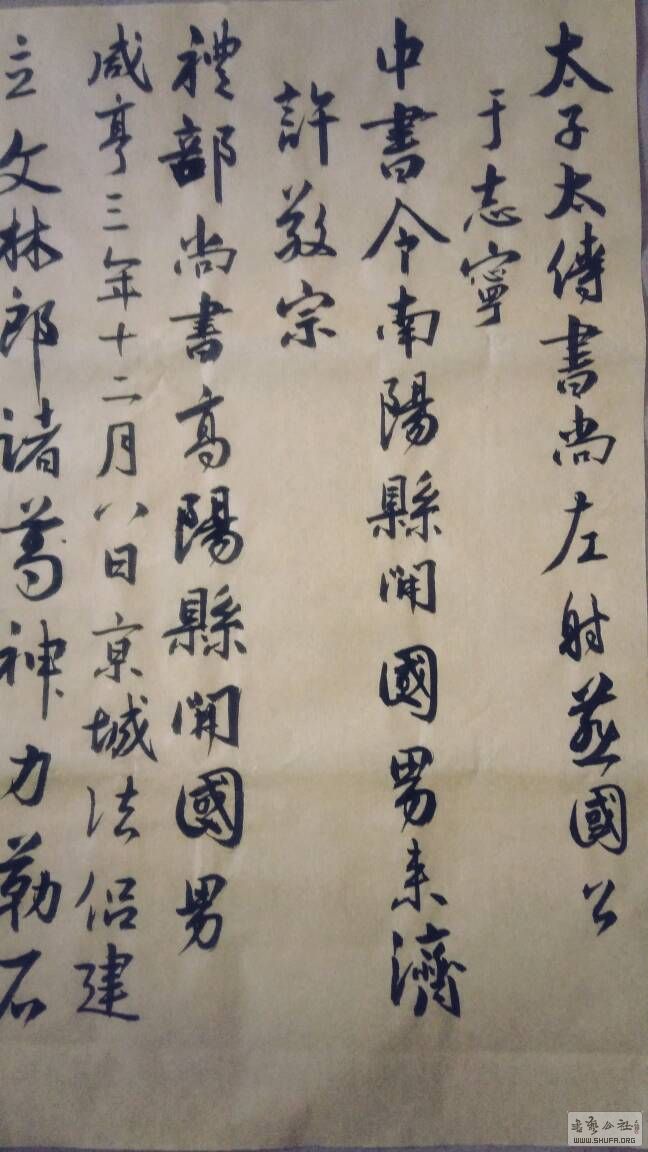 太子太傅書尚左射燕國公
于志寧
中書令南陽縣開國男来濟
許敬宗
禮部尚書高陽縣開國男
咸亨三年十二月八日京城法侣建
立文林郎诸葛神力勒石
WWW.SHUFA.ORG